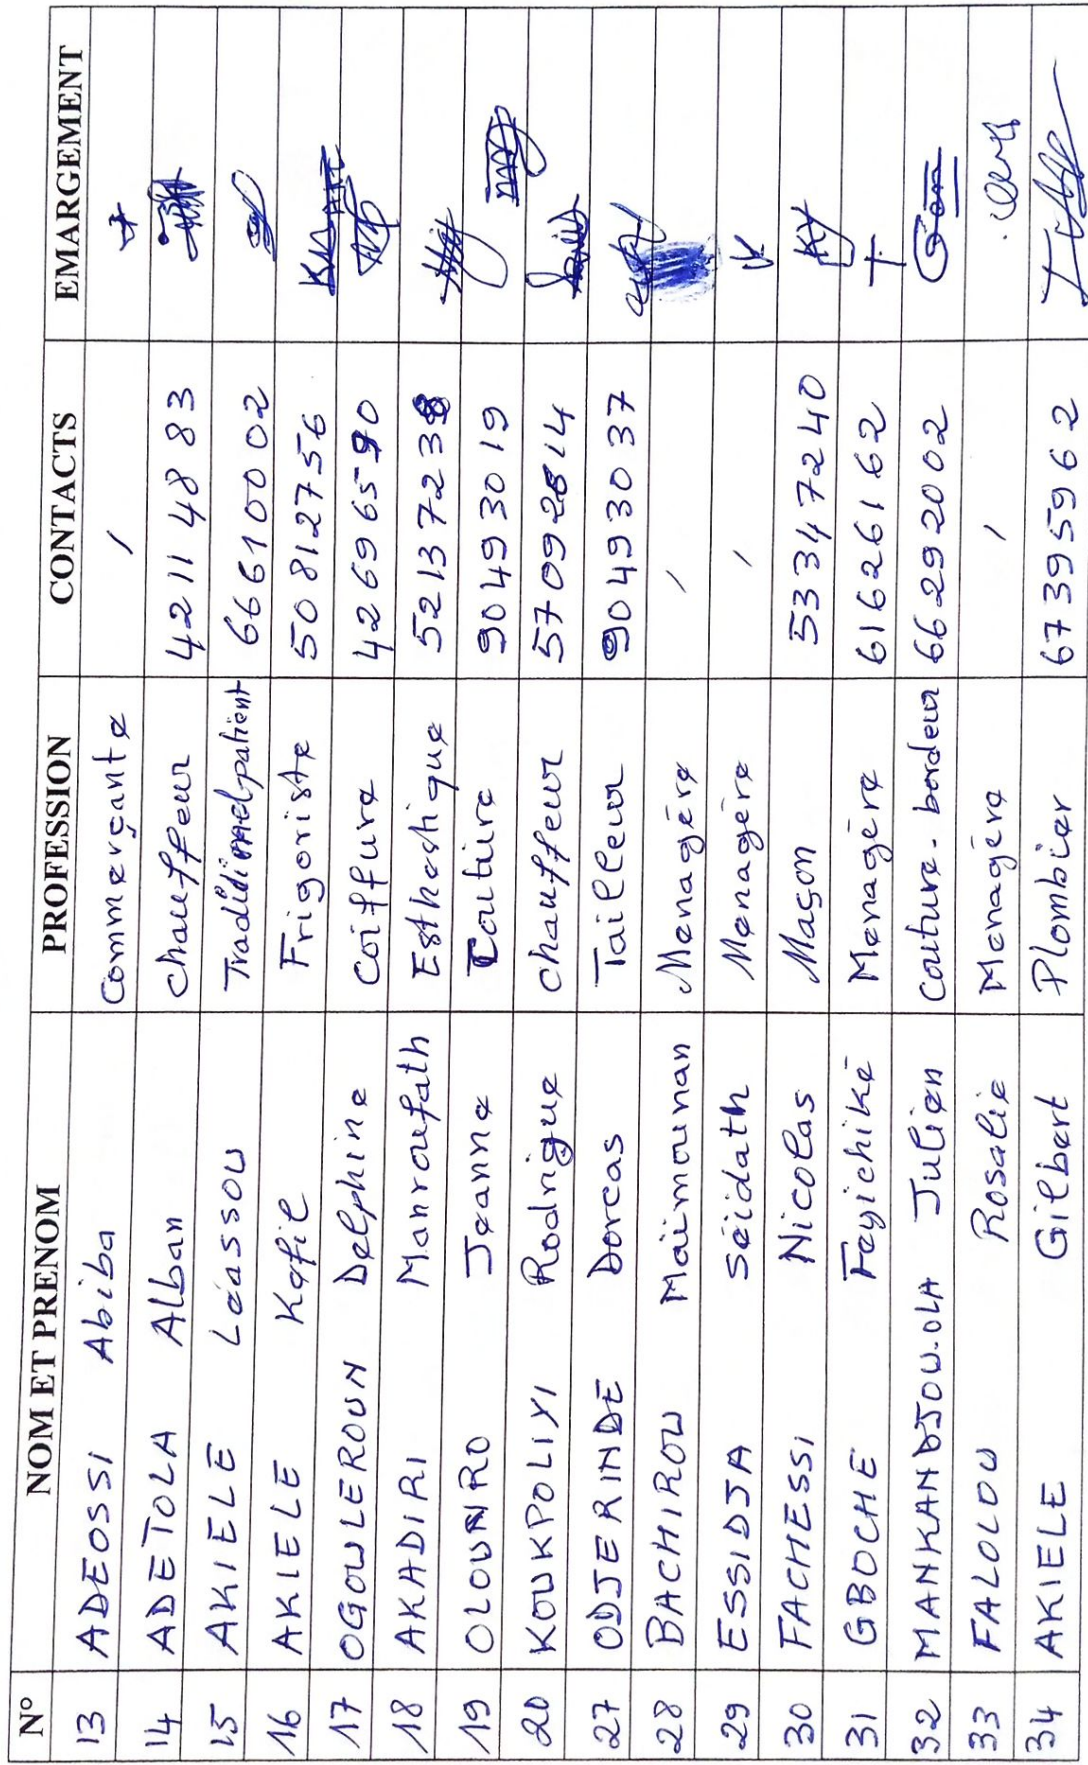 N° NOM ET PRENOM PROFESSION CONTACTS EMARGEMENT
13 ADEOSSI Abiba Commerçante /
14 ADETOLA Alban Chauffeur 42 11 48 83
15 AKIELE Léassou 66610002
16 AKIELE Kafil Frigoriste 50812756
17 OGOULEROUN Delphine Coiffure 42696590
18 AKADIRI Manroufath Esthectique 52137238
19 OLOUNRO Jeanne Couture 90493019
20 KOUKPOLIYI Rodrigue chauffeur 57092814
27 ODJERINDE Dorcas Tailleur 90493037
28 BACHIROU Maïmounan Menagère /
29 ESSIDJA Séidath Menagère /
30 FACHESSI Nicolas Maçon 53347240 KY
31 GBOCHE Fayichiké Menagère 61626162
32 MANKANDJOU.OLA Julien Couture-bordeur 66292002
33 FALOLOU Rosalie Menagère /
34 AKIELE Gilbert Plombier 67395962